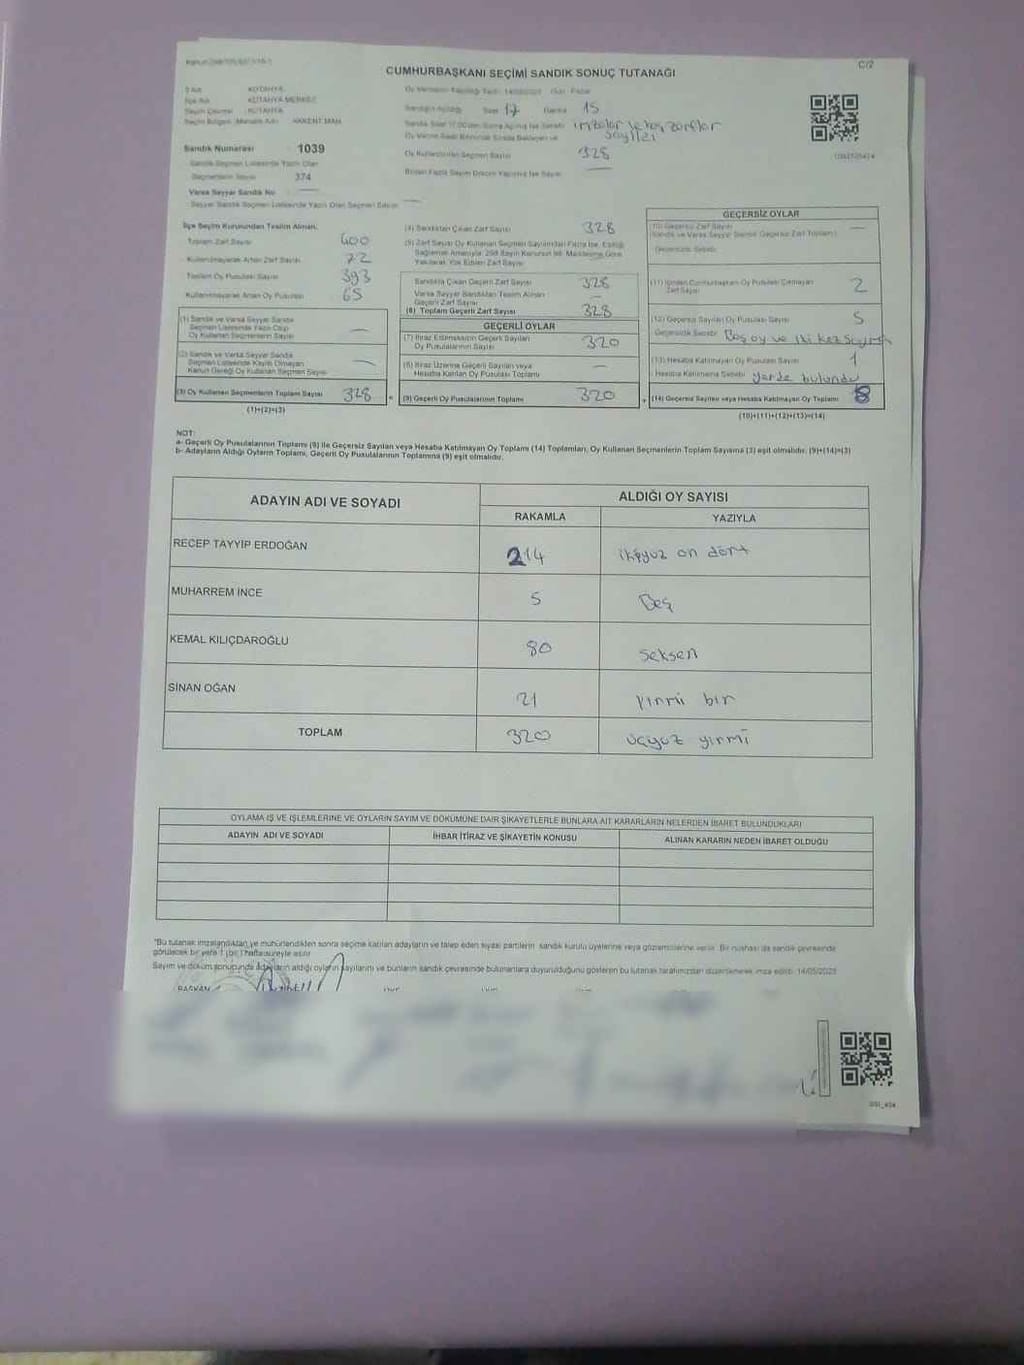 C/2
CUMHURBAŞKANI SEÇİMİ SANDIK SONUÇ TUTANAĞI
İl Adı KÜTAHYA
İlçe Adı KÜTAHYA MERKEZ
Seçim Çevresi KÜTAHYA
Sandık Numarası 1039
Sandık Seçmen Listesinde Yazılı Olan
Seçmenlerin Sayısı 374
Varsa Seyyar Sandık No
Seyyar Sandık Seçmen Listesinde Yazılı Olan Seçmen Sayısı
Sandığın Açıldığı Saat 17 Dakika 15
imzalar ile boş zarflar
sayıldı
Oy Kullandırılan Seçmen Sayısı 328
Birden Fazla Sayım Döküm Yapılmış İse Sayısı
İlçe Seçim Kurulundan Teslim Alınan;
Toplam Zarf Sayısı 400
Kullanılmayarak Artan Zarf Sayısı 72
Toplam Oy Pusulası Sayısı 393
Kullanılmayarak Artan Oy Pusulası 65
(1) Sandık ve Varsa Seyyar Sandık
Seçmen Listesinde Yazılı Olup
Oy Kullanan Seçmenlerin Sayısı
(2) Sandık ve Varsa Seyyar Sandık
Seçmen Listesinde Kayıtlı Olmayan
Kanun Gereği Oy Kullanan Seçmen Sayısı
(3) Oy Kullanan Seçmenlerin Toplam Sayısı 328
(1)+(2)=(3)
(4) Sandıktan Çıkan Zarf Sayısı 328
(5) Zarf Sayısı Oy Kullanan Seçmen Sayısından Fazla İse, Eşitliği
Sağlamak Amacıyla, 298 Sayılı Kanunun Maddesine Göre
Yakılarak Yok Edilen Zarf Sayısı
Sandıkta Çıkan Geçerli Zarf Sayısı 328
Varsa Seyyar Sandıktan Teslim Alınan
Geçerli Zarf Sayısı
(6) Toplam Geçerli Zarf Sayısı 328
GEÇERLİ OYLAR
(7) İtiraz Edilmeksizin Geçerli Sayılan
Oy Pusulası Sayısı 320
(8) İtiraz Üzerine Geçerli Sayılan veya
Hesaba Katılan Oy Pusulası Toplamı
(9) Geçerli Oy Pusulalarının Toplamı 320
GEÇERSİZ OYLAR
(10) Geçersiz Zarf Sayısı
(Sandık ve Varsa Seyyar Sandık Geçersiz Zarf Toplamı)
Geçersizlik Sebebi
(11) İçinden Cumhurbaşkanı Oy Pusulası Çıkmayan
Zarf Sayısı 2
(12) Geçersiz Sayılan Oy Pusulası Sayısı 5
Geçersizlik Sebebi Boş oy ve iki kez
(13) Hesaba Katılmayan Oy Pusulası Sayısı 1
Hesaba Katılmama Sebebi yerde bulundu
(14) Geçersiz Sayılan veya Hesaba Katılmayan Oy Toplamı 8
(10)+(11)+(12)+(13)=(14)
NOT:
a- Geçerli Oy Pusulalarının Toplamı (9) ile Geçersiz Sayılan veya Hesaba Katılmayan Oy Toplamı (14) Toplamları, Oy Kullanan Seçmenlerin Toplam Sayısına (3) eşit olmalıdır. (9)+(14)=(3)
b- Adayların Aldığı Oyların Toplamı, Geçerli Oy Pusulalarının Toplamına (9) eşit olmalıdır.
ADAYIN ADI VE SOYADI ALDIĞI OY SAYISI
RAKAMLA YAZIYLA
RECEP TAYYİP ERDOĞAN 214 ikiyüz on dört
MUHARREM İNCE 5 Beş
KEMAL KILIÇDAROĞLU 80 seksen
SİNAN OĞAN 21 yirmi bir
TOPLAM 320 üçyüz yirmi
OYLAMA İŞ VE İŞLEMLERİNE VE OYLARIN SAYIM VE DÖKÜMÜNE DAİR ŞİKAYETLERLE BUNLARA AİT KARARLARIN NELERDEN İBARET BULUNDUKLARI
ADAYIN ADI VE SOYADI İHBAR İTİRAZ VE ŞİKAYETİN KONUSU ALINAN KARARIN NEDEN İBARET OLDUĞU
"Bu tutanak imzalandıktan ve mühürlendikten sonra seçime katılan adayların ve talep eden siyasi partilerin sandık kurulu üyelerine veya gözlemcilerine verilir. Bir nüshası da sandık çevresinde
görülecek bir yere 1 (bir) hafta süreyle asılır
Sayım ve döküm sonucunda adayların aldığı oyların sayılarını ve bunların sandık çevresinde bulunanlara duyurulduğunu gösteren bu tutanak tarafımızdan düzenlenerek imza edildi. 14/05/2023
BAŞKAN